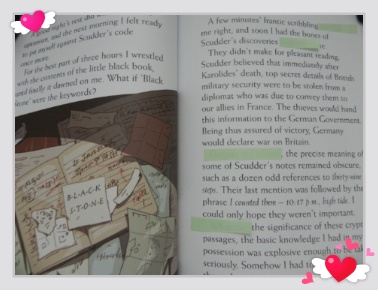 A good night's rest
and the next morning I felt ready
to pit myself against Scudder's code
once more.
For the best part of three hours I wrestled
with the contents of the little black book,
and finally it dawned on me. What if 'Black
Stone' were the keywords?
BLACK
STONE
A few minutes' frantic scribbling
me right, and soon I had the bones of
Scudder's discoveries
They didn't make for pleasant reading.
Scudder believed that immediately after
Karolides' death, top secret details of British
military security were to be stolen from a
diplomat who was due to convey them to
our allies in France. The thieves would hand
this information to the German Government.
Being thus assured of victory, Germany
would declare war on Britain.
, the precise meaning of
some of Scudder's notes remained obscure,
such as a dozen odd references to thirty-nine
steps. Their last mention was followed by the
phrase I counted them – 10.17 p.m., high tide. I
could only hope they weren't important.
the significance of these cryptic
passages, the basic knowledge I had in my
possession was explosive enough to be taken
seriously. Somehow I had to